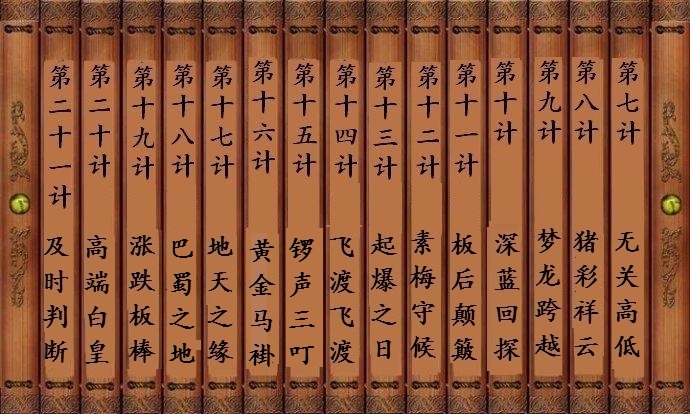 第七计 无关高低
第八计 猪彩祥云
第九计 梦龙跨越
第十计 深蓝回探
第十一计 板后颠簸
第十二计 素梅守候
第十三计 起爆之日
第十四计 飞渡飞渡
第十五计 锣声三叮
第十六计 黄金马褂
第十七计 地天之缘
第十八计 巴蜀之地
第十九计 涨跌板棒
第二十计 高端白皇
第二十一计 及时判断